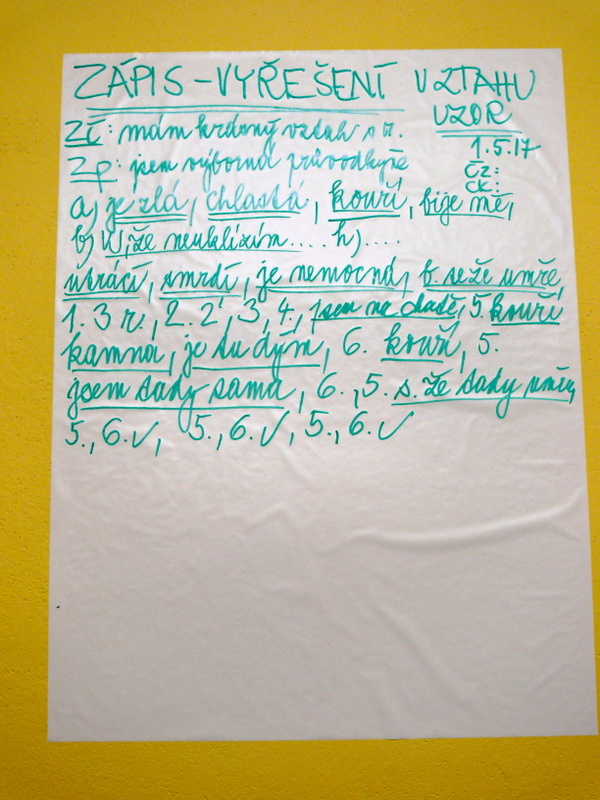 ZÁPIS – VYŘEŠENÍ VZTAHU
VZOR
1.5.17
ZČ: mám krásný vztah s r.
ZP: jsem výborná průvodkyně
čz:
čk:
a) je zlá, chlastá, kouří, bije mě,
b) že neuklízím.... h)....
útrácí, smrdí, je nemocná, b. se že umře,
1. 3 r., 2. 2', 3, 4., jsem na chatě, 5. kouří
kamna, je tu dým, 6. kouř, 5.
jsem tady sama, 6., 5. s. že tady umřu,
5., 6.✓, 5., 6.✓, 5., 6.✓